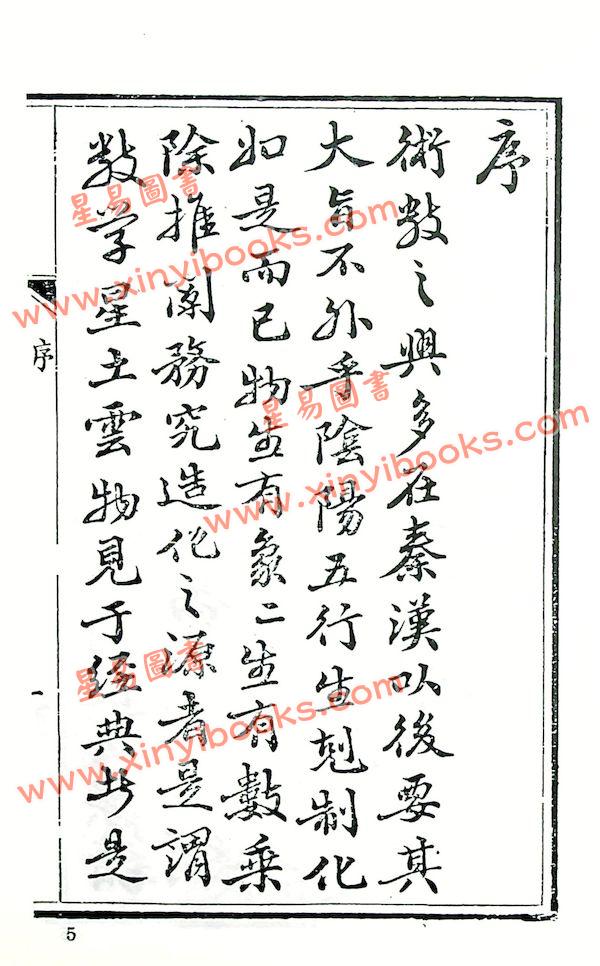 序
術數之興多在秦漢以後要其
大旨不外乎陰陽五行生剋制化
如是而已物生有象二生有數乘
除推闡務究造化之源者是謂
數學星土雲物見于經典是
序
一
5
星易圖書
www.xinyibooks.com
星易圖書
www.xinyibooks.com
星易圖書
www.xinyibooks.com